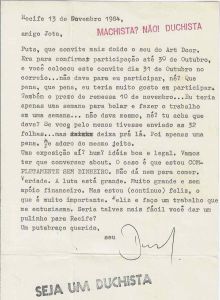 Recife 13 de Novembro 1984,
MACHISTA? NÃO! DUCHISTA
amigo Jota,
Puts, que convite mais doido o seu do Art Door.
Era para confirmar participação até 30 de Outubro
e você colocou este convite dia 31 de Outubro no
correio...não dava para eu participar, né? Que
pena, que pena, eu teria muito gosto em participar.
Também o prazo de remessa 10 de novembro...Eu teria
apenas uma semana para bolar e fazer o trabalho
em uma semana... não dava mesmo, né? tu acha que
dava? Se você pelo menos tivesse enviado as 32
folhas...mas deixa prá lá. Foi apenas uma
pena. Te adoro do mesmo jeito.
Uma exposição aí? hum? idéia boa e legal. Vamos
ter que conversar about. O caso é que estou COM-
PLETAMENTE SEM DINHEIRO. Não dá nem para comer.
Verdade. A luta está grande. Muito grande e sem
apoio financeiro. Mas estou (continuo) feliz, o
que é muito importante. Feliz e faço um trabalho que
me entusiasma. Seria talvez mais fácil você dar um
pulinho para Recife?
Um putabraço querido,
seu
SEJA UM DUCHISTA